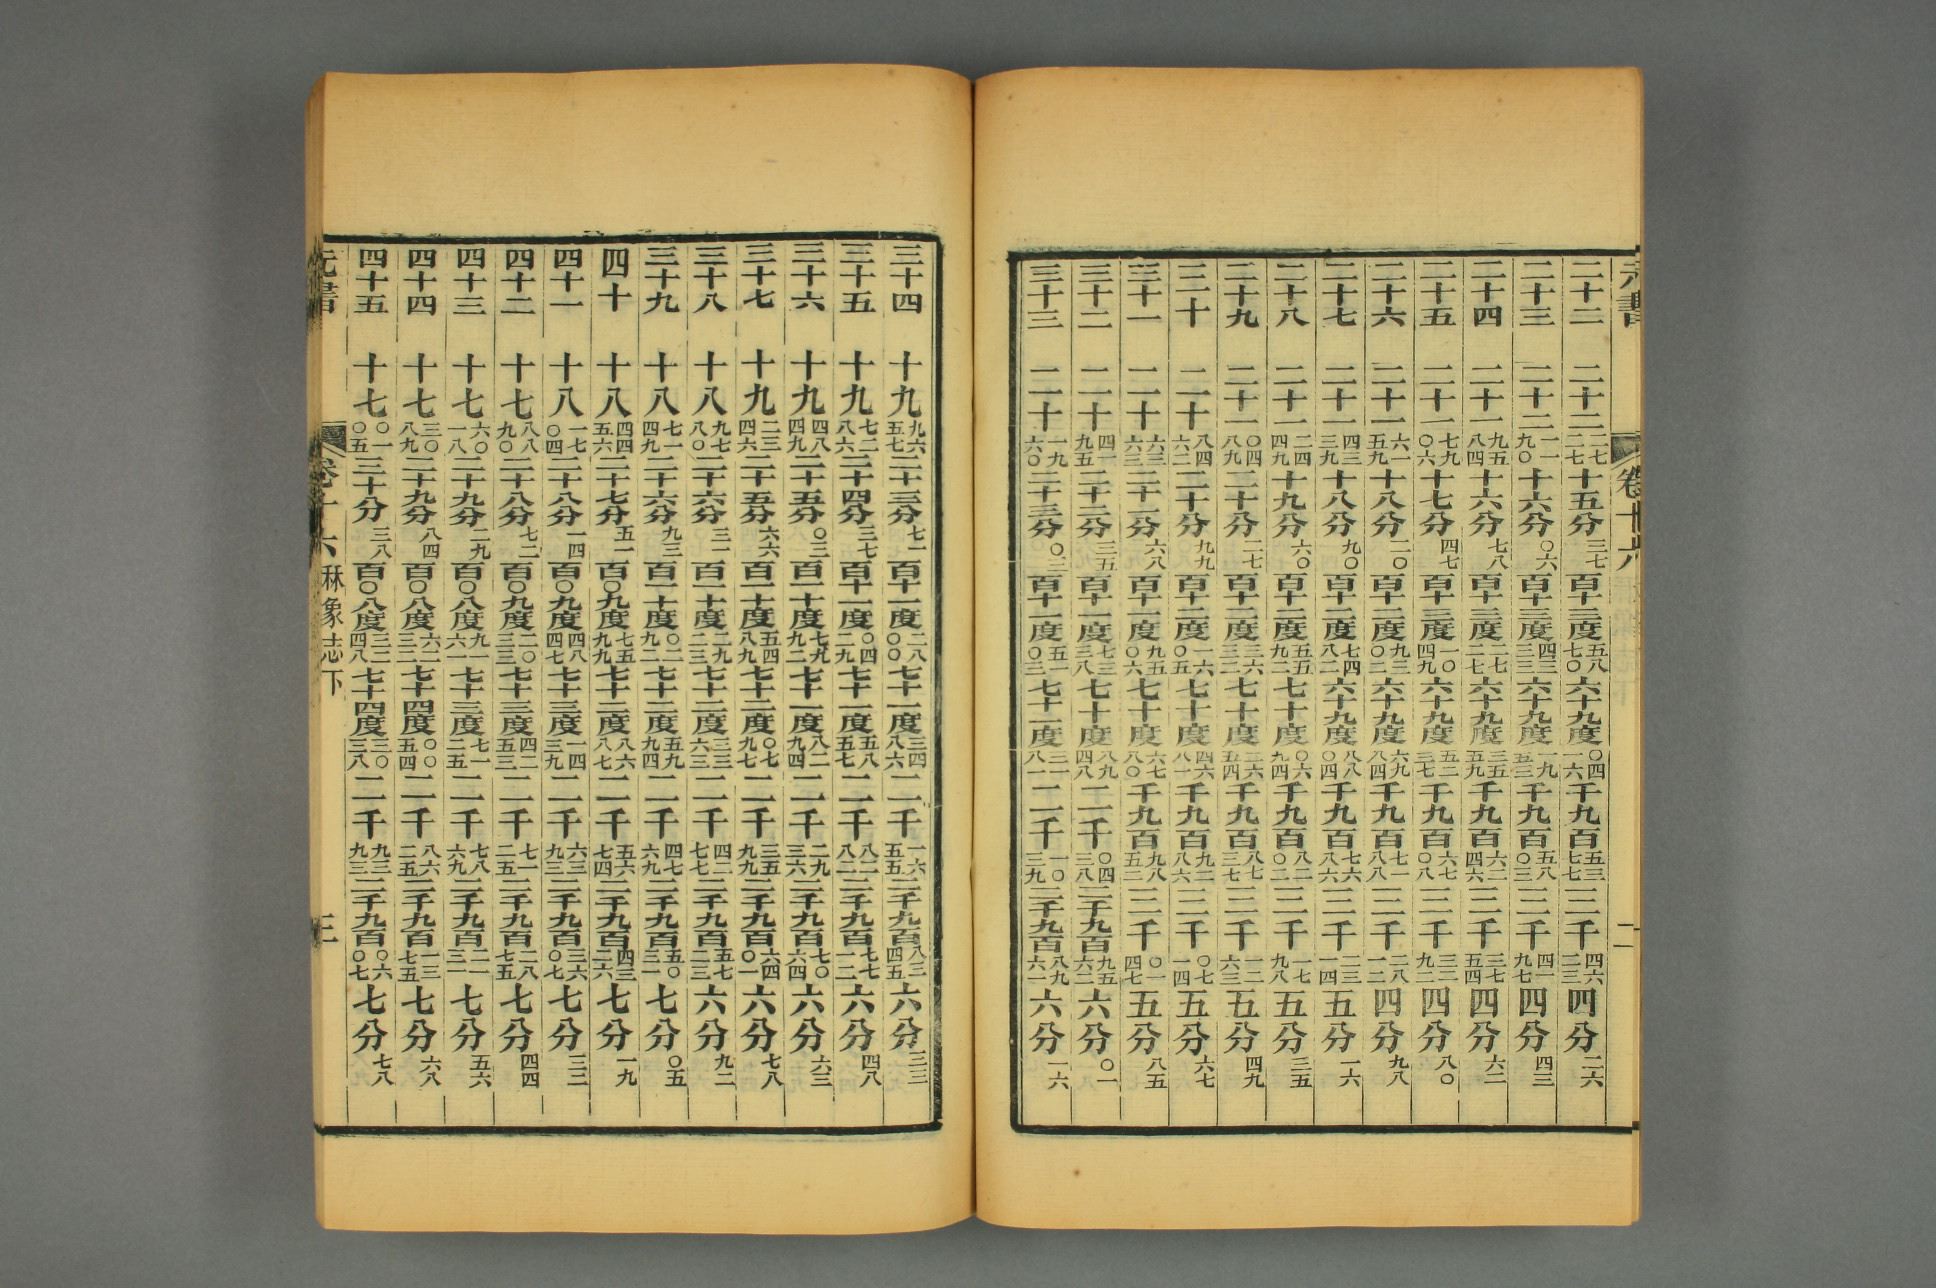 元書 卷十六 二
二十二 二十二二七二七 十五分三七 百十三度五八七〇 六十九度〇四一六 千九百五三七七 二千四六二三 四分二六
二十三 二十二一一九〇 十六分〇六 百十三度四三三三 六十九度一九五三 千九百五八〇三 二千四一九七 四分四三
二十四 二十一九五八四 十六分七八 百十三度二七二七 六十九度三五五九 千九百六二四六 二千三七五四 四分六二
二十五 二十一七九〇六 十七分四七 百十三度一〇四九 六十九度五二三七 千九百六七〇八 二千三二九二 四分八〇
二十六 二十一六一五九 十八分二〇 百十二度九三〇二 六十九度六九八四 千九百七一八八 二千二八一二 四分九八
二十七 二十一四三三九 十八分九〇 百十二度七四八二 六十九度八八〇四 千九百七六八六 二千二三一四 五分一六
二十八 二十一二四四九 十九分六〇 百十二度五五九二 七十度〇六九四 千九百八二〇二 二千一七九八 五分三五
二十九 二十一〇四八九 二十分二七 百十二度三六三二 七十度二六五四 千九百八七三七 二千一二六三 五分四九
三十 二十八四六二 二十分九九 百十二度一六〇五 七十度四六八一 千九百九二八六 二千〇七一四 五分六七
三十一 二十六三六三 二十一分六八 百十一度九五〇六 七十度六七八〇 千九百九八五二 二千〇一四七 五分八五
三十二 二十四一九五 二十二分三五 百十一度七三三八 七十度八九四八 二千〇四三八 二千九百九五六二 六分〇一
三十三 二十一九六〇 二十三分〇三 百十一度五一〇三 七十一度三一八一 二千一〇三九 二千九百八九六一 六分一六
三十四 十九九六五七 二十三分七一 百十一度二八〇〇 七十一度三四八六 二千一六五五 二千九百八三四五 六分三三
三十五 十九七二八六 二十四分三七 百十一度〇四二九 七十一度五八五七 二千八二八二 二千九百七七一二 六分四八
三十六 十九四八四九 二十五分〇三 百一十度七九九二 七十一度八二九四 二千二九三六 二千九百七〇六四 六分六三
三十七 十九二三四六 二十五分六六 百一十度五四八九 七十二度〇七九七 二千三五九九 二千九百六四〇一 六分七八
三十八 十八九七八〇 二十六分三一 百一十度二九二三 七十二度三三六三 二千四二七七 二千九百五七二三 六分九二
三十九 十八七一四九 二十六分九三 百一十度〇二九二 七十二度五九九四 二千四七六九 二千九百五〇三一 七分〇五
四十 十八四四五六 二十七分五一 百〇九度七五九九 七十二度八六八七 二千五六七四 二千九百四三二六 七分一九
四十一 十八一七〇四 二十八分一四 百〇九度四八四七 七十三度一四三九 二千六三九三 二千九百三六〇七 七分三二
四十二 十七八八九〇 二十八分七二 百〇九度二〇三三 七十三度四二五三 二千七一二五 二千九百二八七五 七分四四
四十三 十七六〇一八 二十九分二九 百〇八度九一六一 七十三度七一二五 二千七八六九 二千九百二一三一 七分五六
四十四 十七三〇八九 二十九分八四 百〇八度六二三二 七十四度〇〇五四 二千八六二五 二千九百一三七五 七分六八
四十五 十七〇一〇五 三十分三八 百〇八度三二四八 七十四度三〇三八 二千九三九三 二千九百〇六〇七 七分七八
元書 卷十六 厤象志下 三